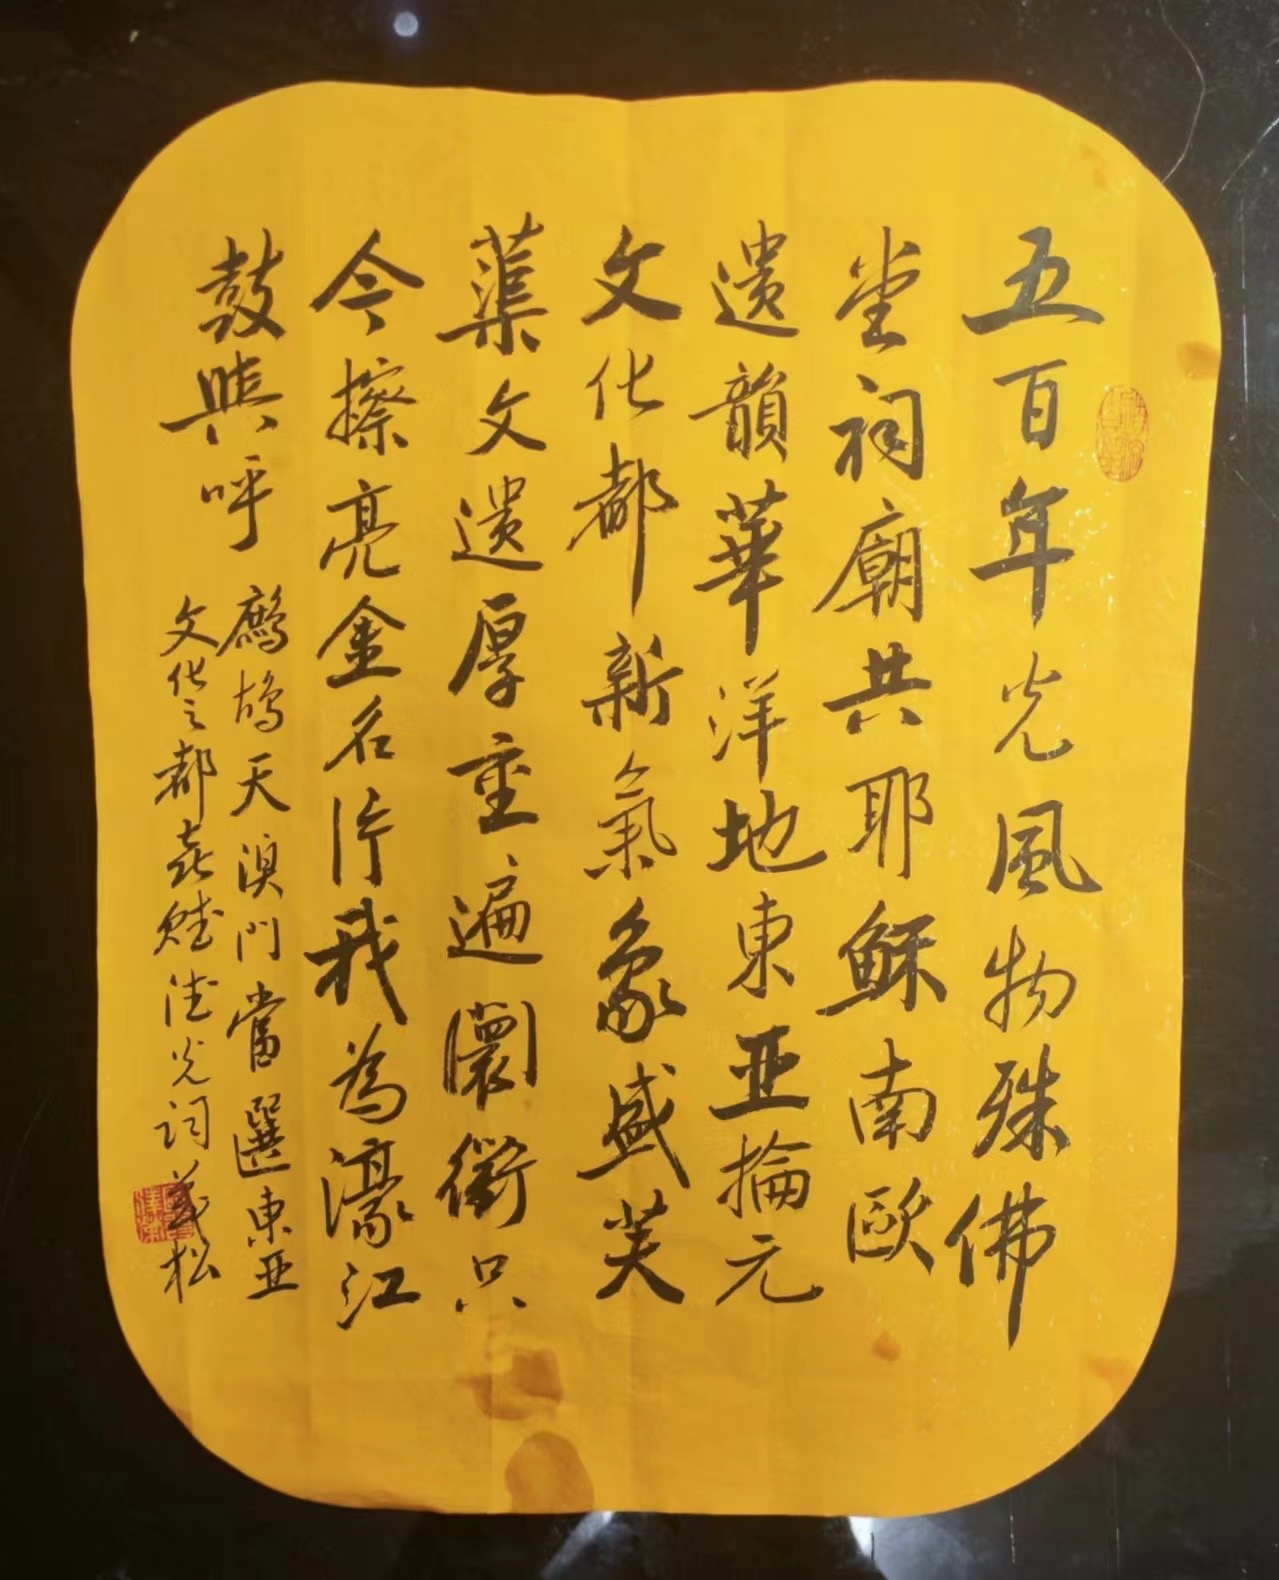 五百年光風物殊佛
堂祠廟共耶穌南歐
遺韻華洋地東亞掄元
文化都新氣象盛芙
蕖文遺厚重遍闤衢只
今擦亮金名片我為濠江
鼓與呼
鷓鴣天澳門當選東亞
文化之都喜賦德光詞義松